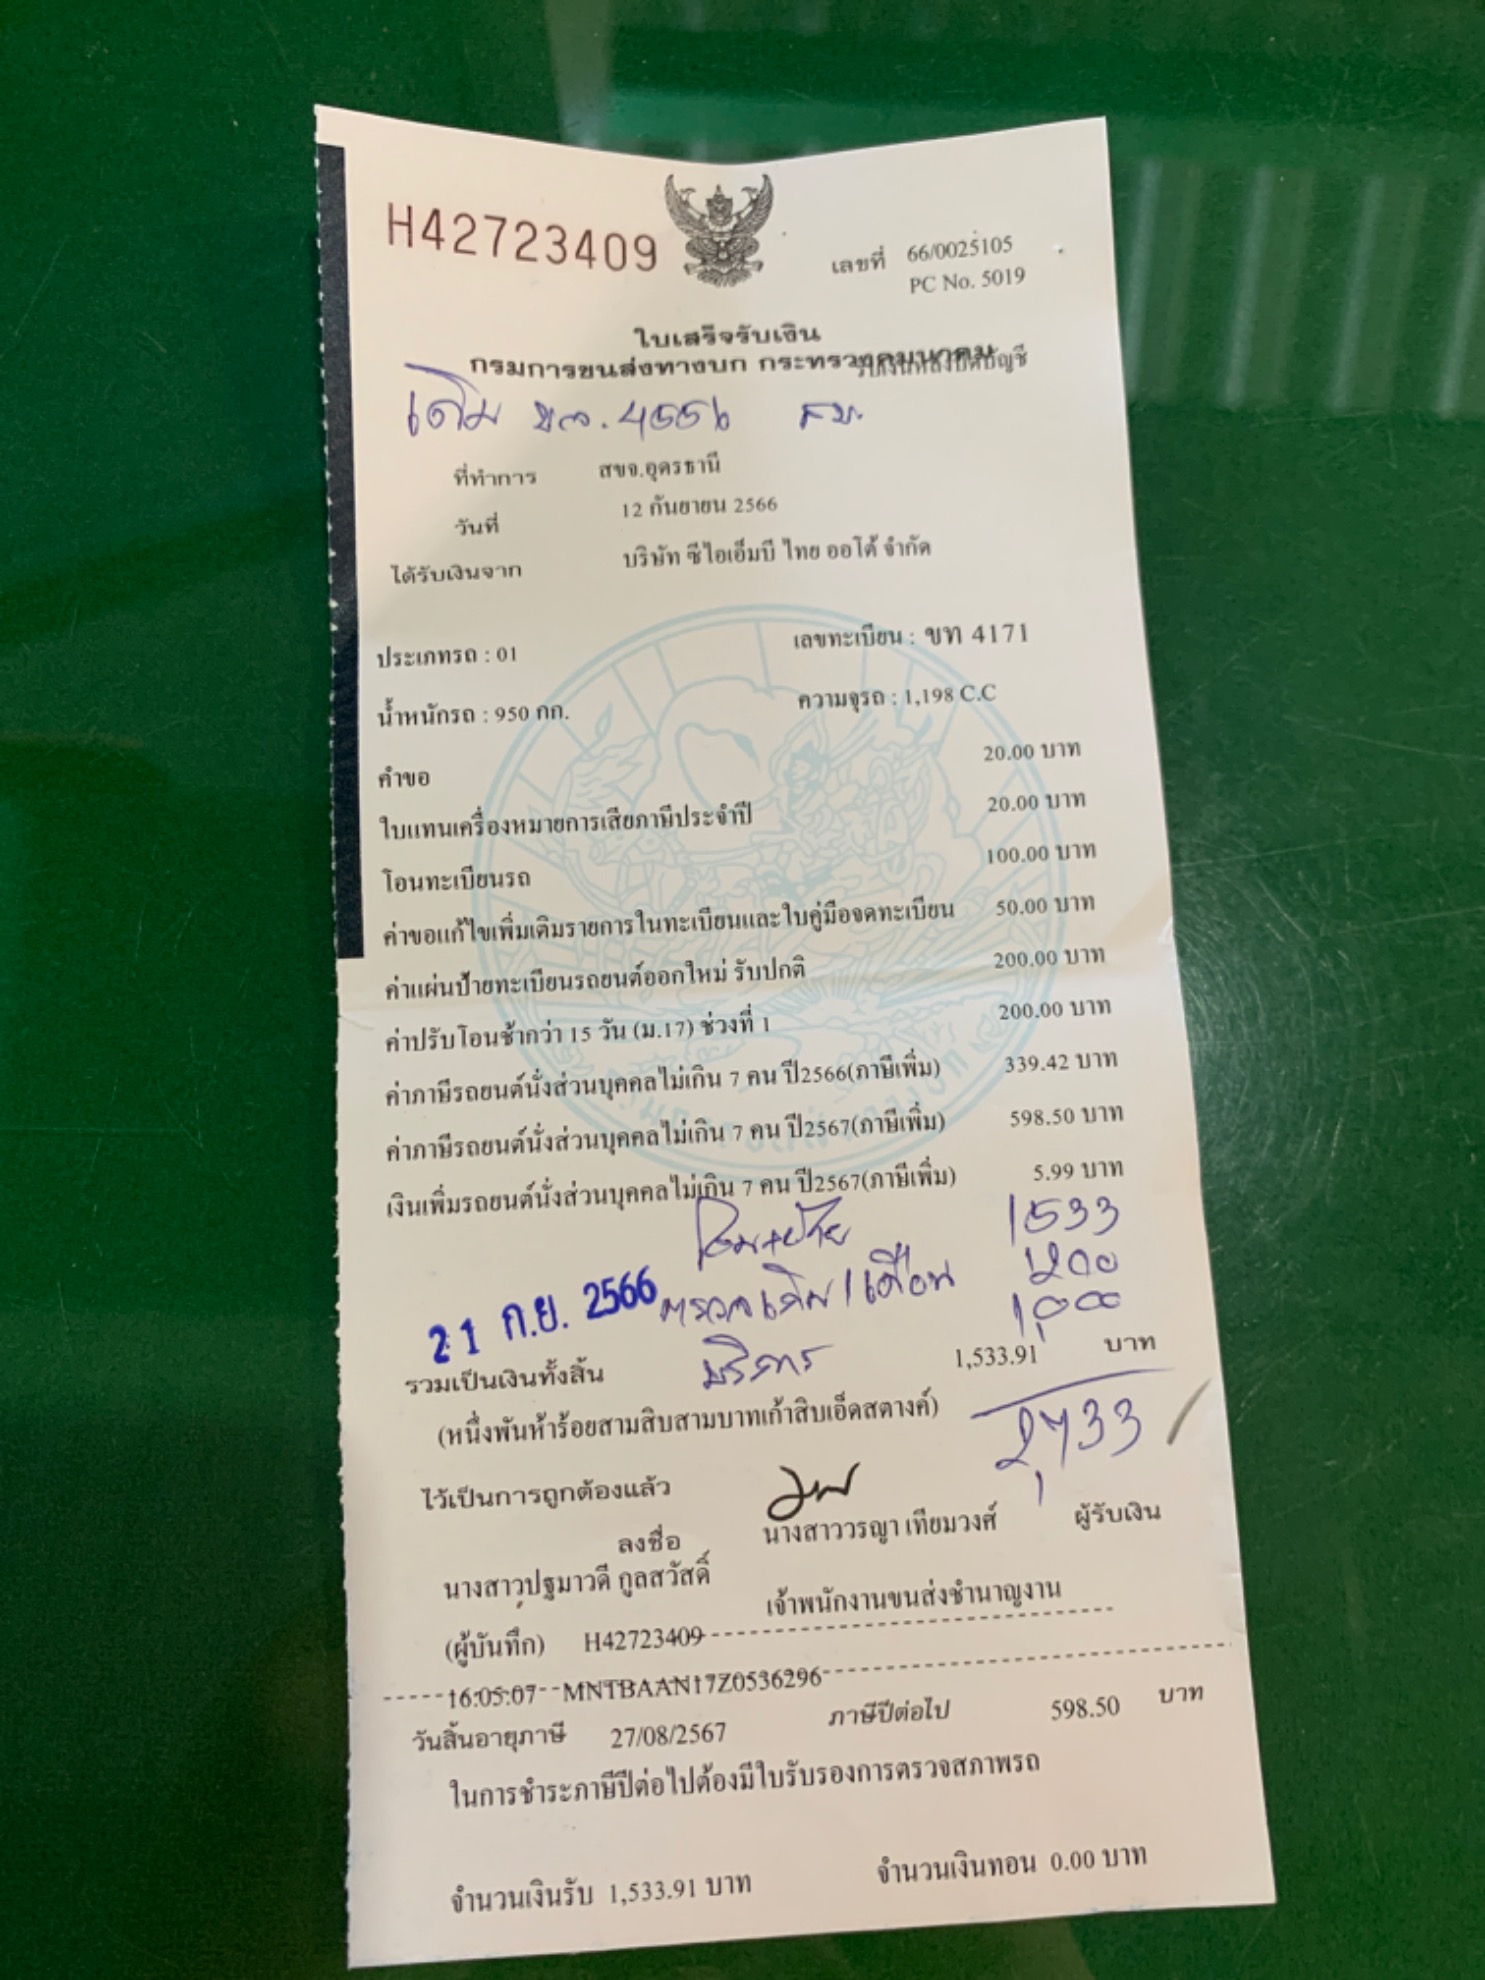 H42723409
เลขที่ 66/0025105
PC No. 5019
ใบเสร็จรับเงิน
กรมการขนส่งทางบก กระทรวงคมนาคม
รับเงินหลังปิดบัญชี
เดิม
ที่ทำการ สขจ.อุดรธานี
วันที่ 12 กันยายน 2566
ได้รับเงินจาก บริษัท ซีไอเอ็มบี ไทย ออโต้ จำกัด
ประเภทรถ : 01 เลขทะเบียน : ขท 4171
น้ำหนักรถ : 950 กก. ความจุรถ : 1,198 C.C
คำขอ 20.00 บาท
ใบแทนเครื่องหมายการเสียภาษีประจำปี 20.00 บาท
โอนทะเบียนรถ 100.00 บาท
ค่าขอแก้ไขเพิ่มเติมรายการในทะเบียนและใบคู่มือจดทะเบียน 50.00 บาท
ค่าแผ่นป้ายทะเบียนรถยนต์ออกใหม่ รับปกติ 200.00 บาท
ค่าปรับโอนช้ากว่า 15 วัน (ม.17) ช่วงที่ 1 200.00 บาท
ค่าภาษีรถยนต์นั่งส่วนบุคคลไม่เกิน 7 คน ปี2566(ภาษีเพิ่ม) 339.42 บาท
ค่าภาษีรถยนต์นั่งส่วนบุคคลไม่เกิน 7 คน ปี2567(ภาษีเพิ่ม) 598.50 บาท
เงินเพิ่มรถยนต์นั่งส่วนบุคคลไม่เกิน 7 คน ปี2567(ภาษีเพิ่ม) 5.99 บาท
1533
21 ก.ย. 2566 1 เดือน 200
บริการ 1,000
รวมเป็นเงินทั้งสิ้น 1,533.91 บาท
(หนึ่งพันห้าร้อยสามสิบสามบาทเก้าสิบเอ็ดสตางค์)
2,733
ไว้เป็นการถูกต้องแล้ว
ลงชื่อ นางสาววรญา เทียมวงศ์ ผู้รับเงิน
นางสาวปฐมาวดี กูลสวัสดิ์
เจ้าพนักงานขนส่งชำนาญงาน
(ผู้บันทึก) H42723409
16:05:07 MNTBAAN17Z0536296
วันสิ้นอายุภาษี 27/08/2567 ภาษีปีต่อไป 598.50 บาท
ในการชำระภาษีปีต่อไปต้องมีใบรับรองการตรวจสภาพรถ
จำนวนเงินรับ 1,533.91 บาท จำนวนเงินทอน 0.00 บาท